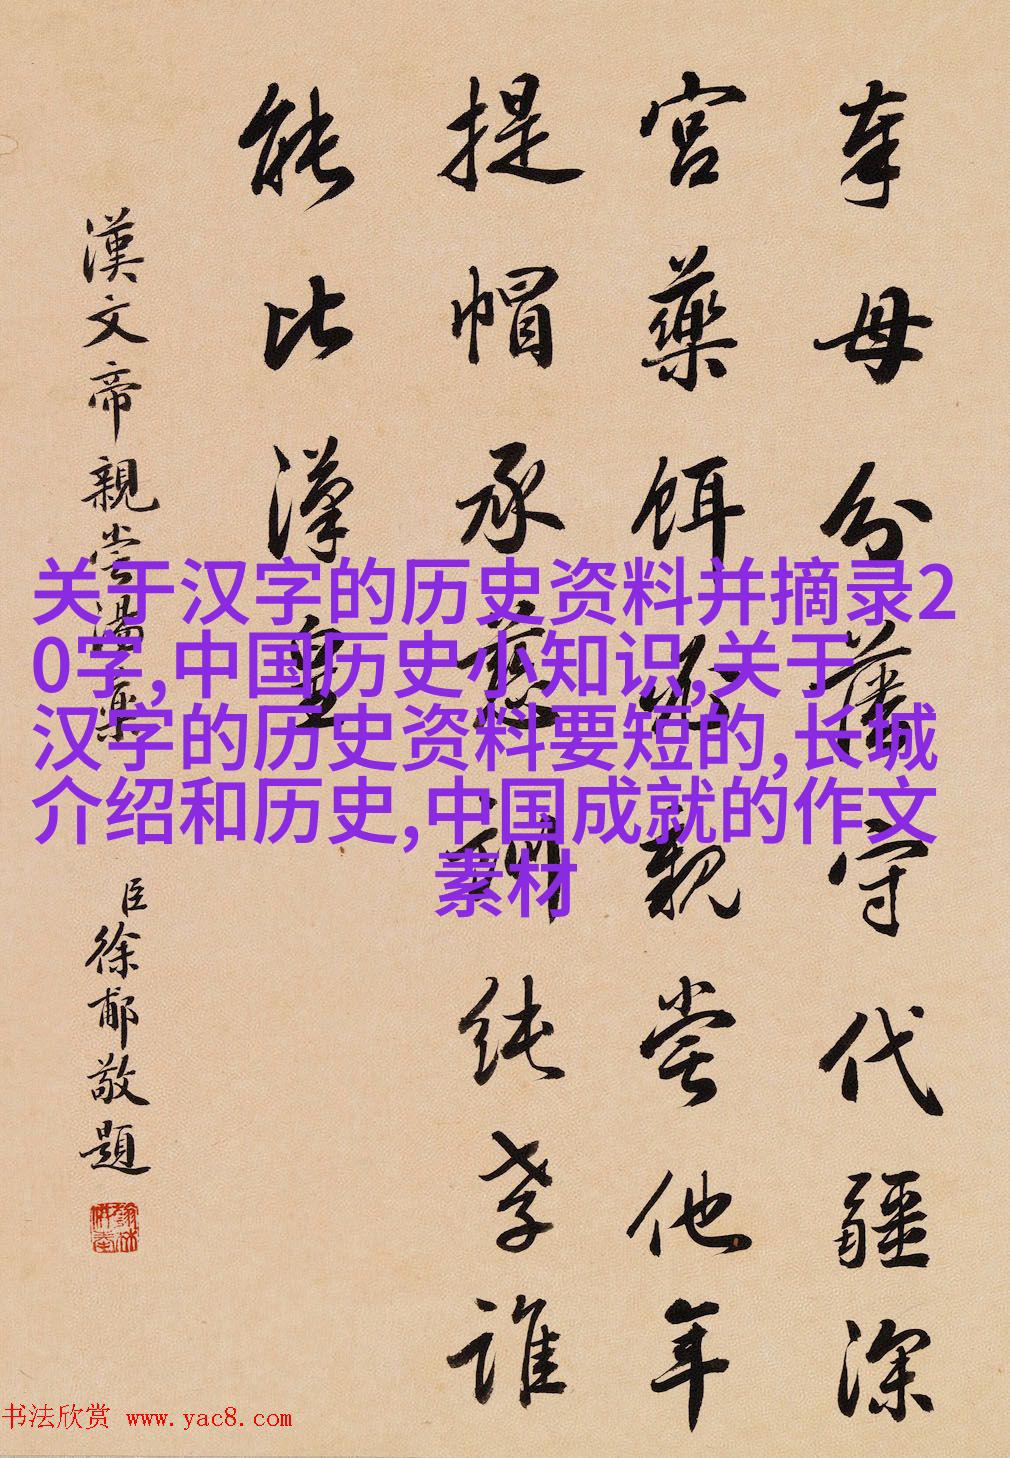 奉母分藩守代疆深
宮藥餌親嘗他年
提帽承慈訓純孝誰
能比漢皇
漢文帝親嘗湯藥
臣徐郙敬題
关于汉字的历史资料并摘录2
0字,中国历史小知识,关于
汉字的历史资料要短的,长城
介绍和历史,中国成就的作文
素材
书法欣赏 www.yac8.com